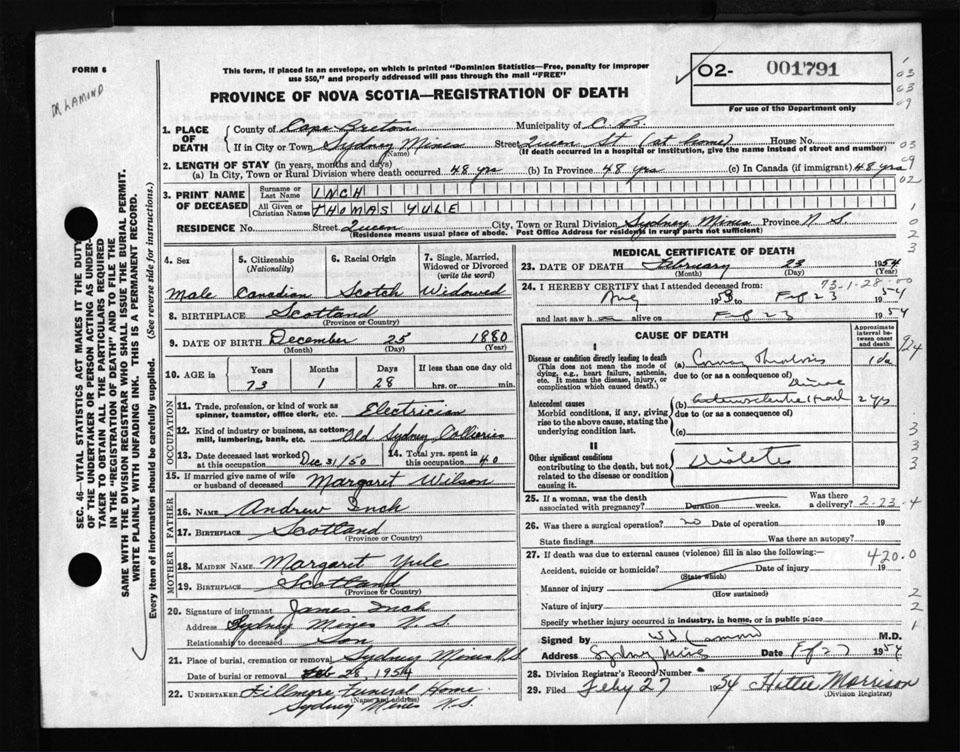 FORM 6
DR LAMOND
This form, if placed in an envelope, on which is printed "Dominion Statistics—Free, penalty for improper
use $50," and properly addressed will pass through the mail "FREE"
PROVINCE OF NOVA SCOTIA—REGISTRATION OF DEATH
O2- 001791
For use of the Department only
1. PLACE OF DEATH
County of Cape Breton Municipality of C.B.
If in City or Town Sydney Mines Street Queen St (at home) House No.
(Name) (If death occurred in a hospital or institution, give the name instead of street and number)
2. LENGTH OF STAY (in years, months and days)
(a) In City, Town or Rural Division where death occurred 48 yrs (b) In Province 48 yrs (c) In Canada (if immigrant) 48 yrs
3. PRINT NAME OF DECEASED
Surname or Last Name INCH
All Given or Christian Names THOMAS YULE
RESIDENCE No. Street Queen City, Town or Rural Division Sydney Mines Province N.S.
(Residence means usual place of abode. Post Office Address for residents in rural parts not sufficient)
4. Sex Male
5. Citizenship (Nationality) Canadian
6. Racial Origin Scotch
7. Single, Married, Widowed or Divorced (write the word) Widowed
8. BIRTHPLACE Scotland
(Province or Country)
9. DATE OF BIRTH December 25 1880
(Month) (Day) (Year)
10. AGE in Years Months Days If less than one day old
73 1 28 hrs. or min.
OCCUPATION
11. Trade, profession, or kind of work as spinner, teamster, office clerk, etc. Electrician
12. Kind of industry or business, as cotton-mill, lumbering, bank, etc. Old Sydney Collieries
13. Date deceased last worked at this occupation Dec 31/50
14. Total yrs. spent in this occupation 40
15. If married give name of wife or husband of deceased Margaret Wilson
FATHER
16. Name Andrew Inch
17. Birthplace Scotland
(Province or Country)
MOTHER
18. MAIDEN NAME Margaret Yule
19. BIRTHPLACE Scotland
(Province or Country)
20. Signature of informant James Inch
Address Sydney Mines N.S.
Relationship to deceased Son
21. Place of burial, cremation or removal Sydney Mines N.S.
Date of burial or removal Feb 28, 1954
22. UNDERTAKER Fillmore Funeral Home
(Name and address)
Sydney Mines N.S.
MEDICAL CERTIFICATE OF DEATH
23. DATE OF DEATH February 23 1954
(Month) (Day) (Year)
73-1-28-00
24. I HEREBY CERTIFY that I attended deceased from:
Aug 1953 to Feb 23 1954
and last saw h alive on Feb 23 1954
CAUSE OF DEATH
Approximate interval between onset and death
I
Disease or condition directly leading to death
(This does not mean the mode of dying, e.g., heart failure, asthenia, etc. It means the disease, injury, or complication which caused death.)
(a) Coronary Thrombosis 1 da
due to (or as a consequence of)
Antecedent causes
Morbid conditions, if any, giving rise to the above cause, stating the underlying condition last.
(b) Arteriosclerotic Heart Disease 2 yrs
due to (or as a consequence of)
(c)
II
Other significant conditions
contributing to the death, but not related to the disease or condition causing it.
Diabetes
25. If a woman, was the death associated with pregnancy? Duration weeks. Was there a delivery?
2-23-4
26. Was there a surgical operation? no Date of operation 19
State findings Was there an autopsy?
27. If death was due to external causes (violence) fill in also the following:
420.0
Accident, suicide or homicide? Date of injury 19
(State which)
Manner of injury
(How sustained)
Nature of injury
Specify whether injury occurred in industry, in home, or in public place
Signed by M.D.
Address Sydney Mines Date Feb 27 1954
28. Division Registrar's Record Number
29. Filed Feby 27 1954 Hattie Morrison
(Division Registrar)
SEC. 46—VITAL STATISTICS ACT MAKES IT THE DUTY
OF THE UNDERTAKER OR PERSON ACTING AS UNDER-
TAKER TO OBTAIN ALL THE PARTICULARS REQUIRED
IN THE "REGISTRATION OF DEATH" AND TO FILE THE
SAME WITH THE DIVISION REGISTRAR WHO SHALL ISSUE THE BURIAL PERMIT.
WRITE PLAINLY WITH UNFADING INK. THIS IS A PERMANENT RECORD.
Every item of information should be carefully supplied. (See reverse side for instructions.)